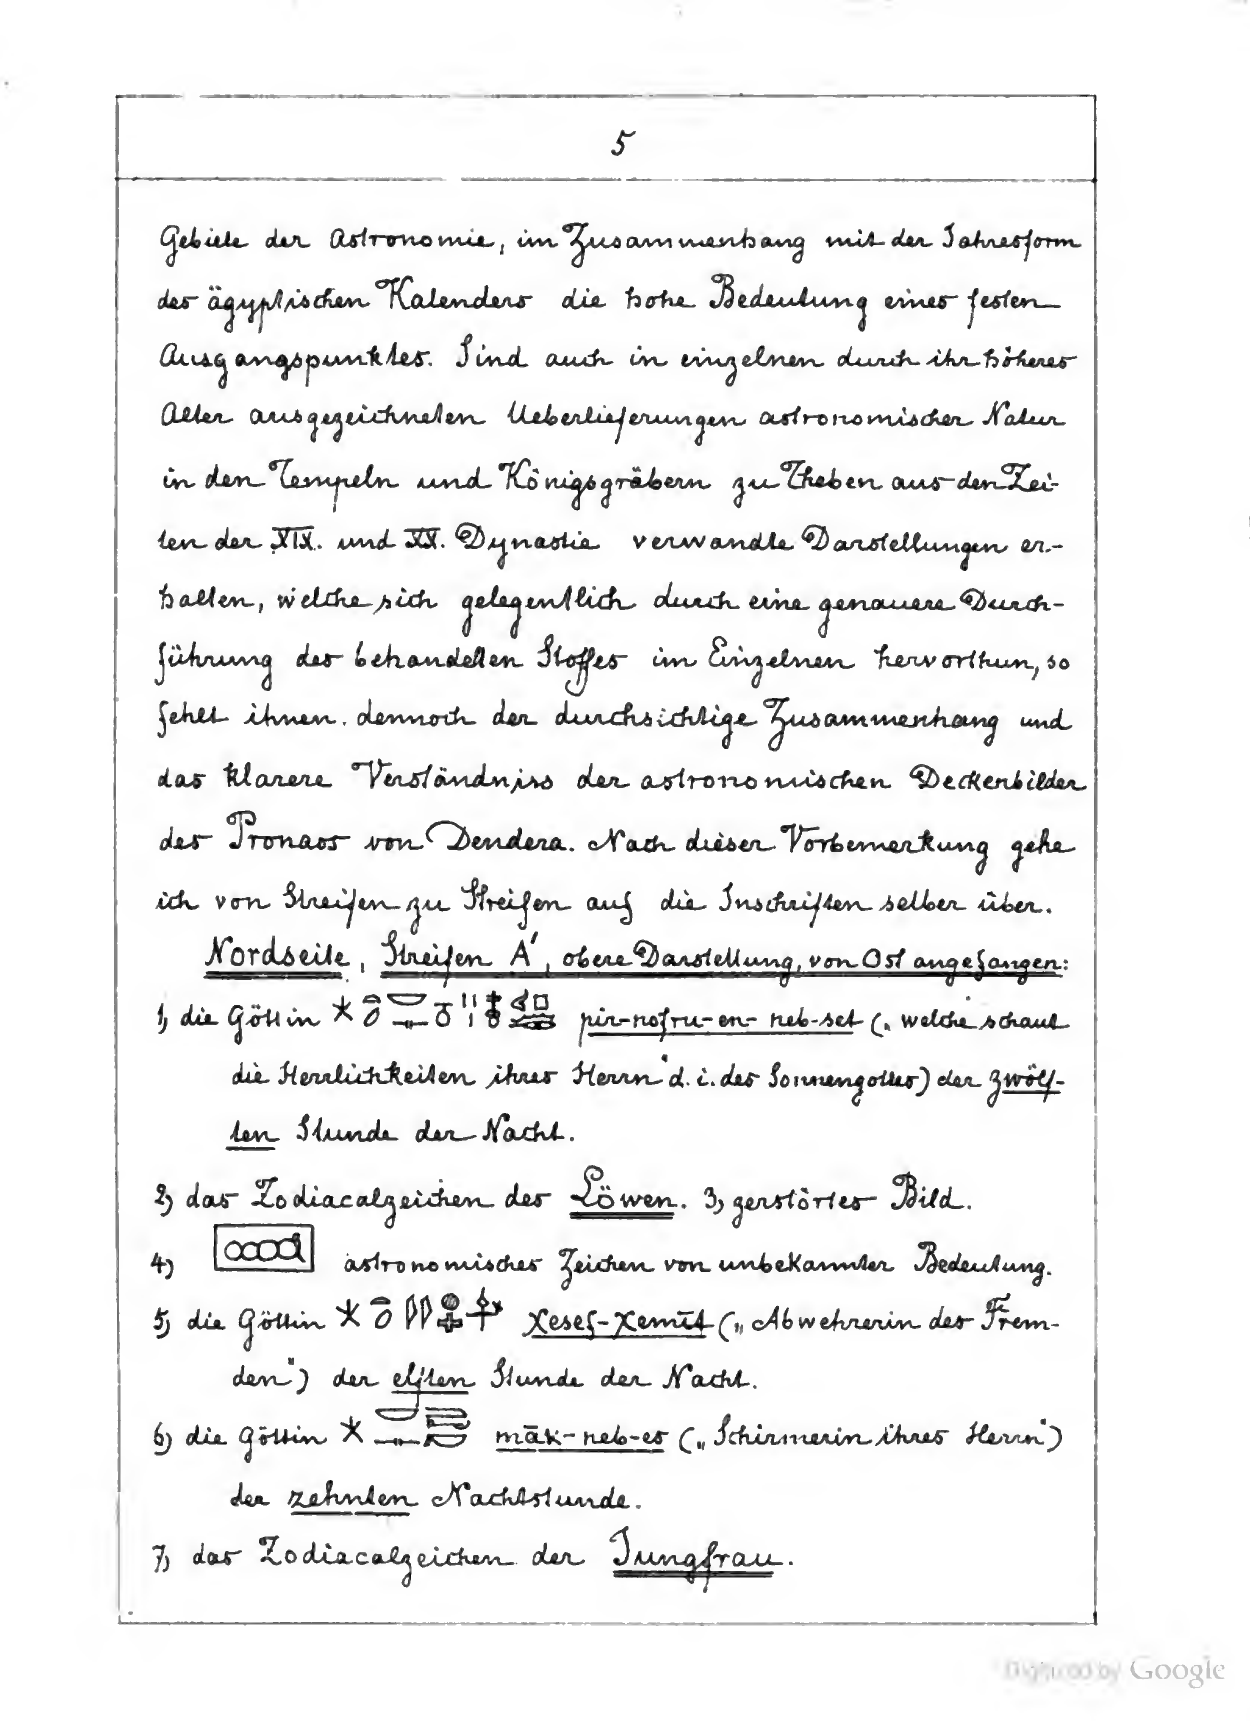 5
Gebiete der Astronomie, im Zusammenhang mit der Jahresform
des ägyptischen Kalenders die hohe Bedeutung eines festen
Ausgangspunktes. Sind auch in einzelnen durch ihr höheres
Alter ausgezeichneten Ueberlieferungen astronomischer Natur
in den Tempeln und Königsgräbern zu Theben aus den Zei-
ten der XIX. und XX. Dynastie verwandte Darstellungen er-
halten, welche sich gelegentlich durch eine genauere Durch-
führung des behandelten Stoffes im Einzelnen hervorthun, so
fehlt ihnen dennoch der durchsichtige Zusammenhang und
das klarere Verständniss der astronomischen Deckenbilder
des Pronaos von Dendera. Nach dieser Vorbemerkung gehe
ich von Streifen zu Streifen auf die Inschriften selber über.
Nordseite, Streifen A', obere Darstellung, von Ost angefangen:
1) die Göttin pir-nofru-en-neb-set („welche schaut
die Herrlichkeiten ihres Herrn" d. i. des Sonnengottes) der zwölf-
ten Stunde der Nacht.
2) das Zodiacalzeichen des Löwen. 3) zerstörtes Bild.
4) astronomisches Zeichen von unbekannter Bedeutung.
5) die Göttin χesef-χemīt („Abwehrerin des Frem-
den") der elften Stunde der Nacht.
6) die Göttin māk-neb-es („Schirmerin ihres Herrn")
der zehnten Nachtstunde.
7) das Zodiacalzeichen der Jungfrau.
Digitized by Google